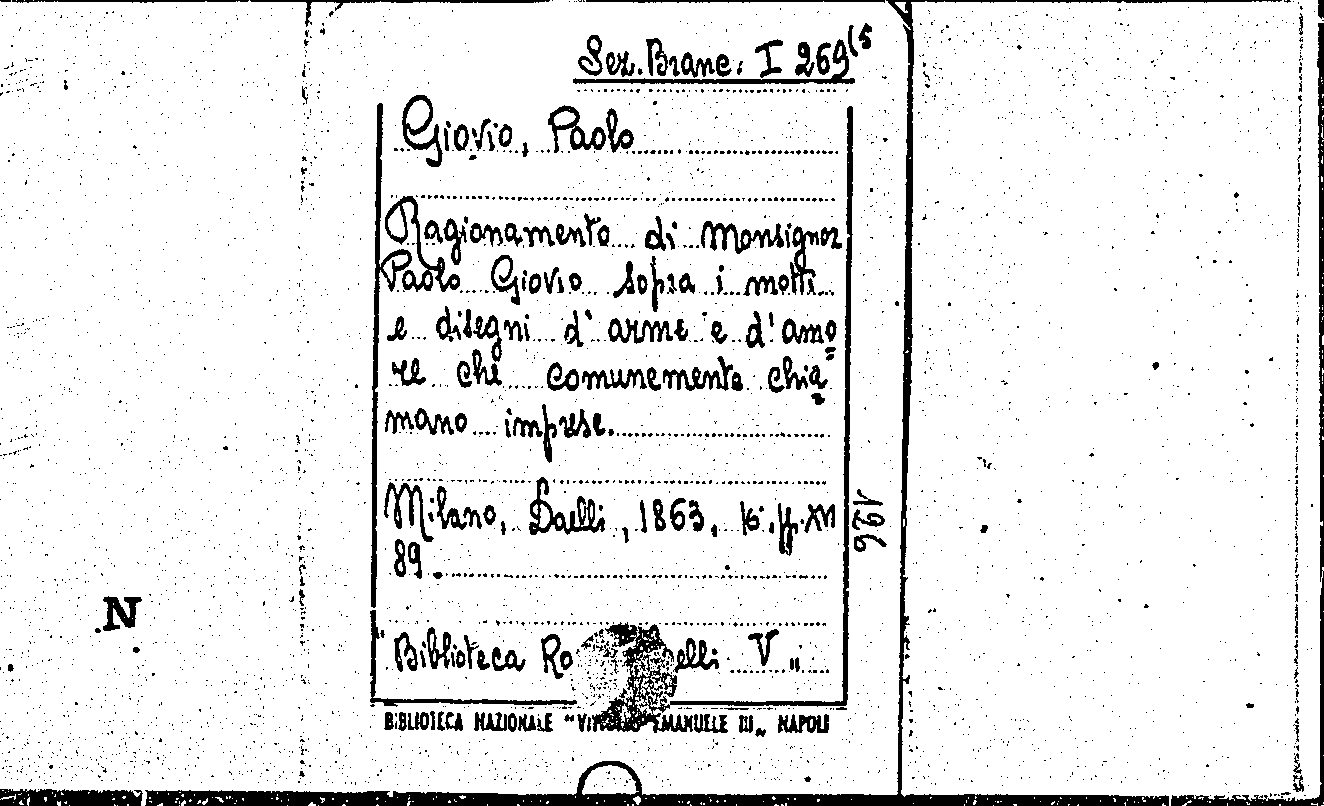 Sez. Branc. I 269(5
Giovio, Paolo
Ragionamento di Monsignor
Paolo Giovio sopra i motti
e disegni d'arme e d'amo=
re che comunemente chia=
mano imprese.
Milano, Daelli, 1863, 16°. pp. XVI
89.
"Biblioteca Ro elli V"
BIBLIOTECA NAZIONALE "VITTORIO EMANUELE III" NAPOLI
1926
N